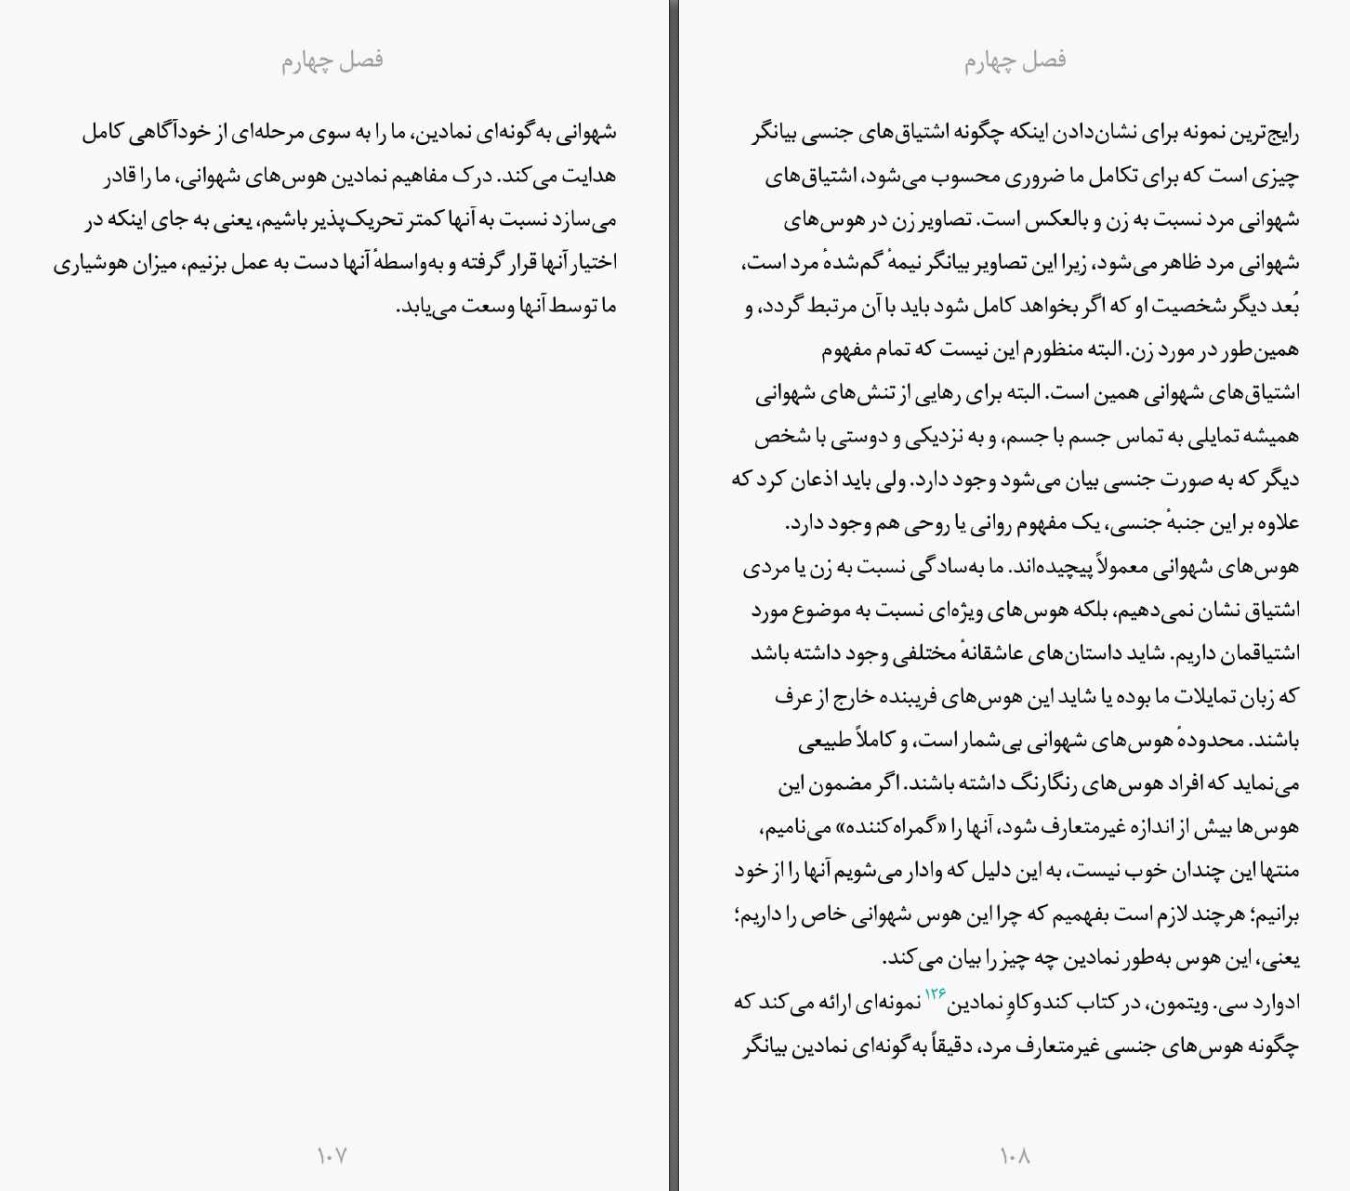 فصل چهارم
شهوانی به‌گونه‌ای نمادین، ما را به سوی مرحله‌ای از خودآگاهی کامل
هدایت می‌کند. درک مفاهیم نمادین هوس‌های شهوانی، ما را قادر
می‌سازد نسبت به آنها کمتر تحریک‌پذیر باشیم، یعنی به جای اینکه در
اختیار آنها قرار گرفته و به‌واسطهٔ آنها دست به عمل بزنیم، میزان هوشیاری
ما توسط آنها وسعت می‌یابد.
۱۰۷
فصل چهارم
رایج‌ترین نمونه برای نشان‌دادن اینکه چگونه اشتیاق‌های جنسی بیانگر
چیزی است که برای تکامل ما ضروری محسوب می‌شود، اشتیاق‌های
شهوانی مرد نسبت به زن و بالعکس است. تصاویر زن در هوس‌های
شهوانی مرد ظاهر می‌شود، زیرا این تصاویر بیانگر نیمهٔ گم‌شدهٔ مرد است،
بُعد دیگر شخصیت او که اگر بخواهد کامل شود باید با آن مرتبط گردد، و
همین‌طور در مورد زن. البته منظورم این نیست که تمام مفهوم
اشتیاق‌های شهوانی همین است. البته برای رهایی از تنش‌های شهوانی
همیشه تمایلی به تماس جسم با جسم، و به نزدیکی و دوستی با شخص
دیگر که به صورت جنسی بیان می‌شود وجود دارد. ولی باید اذعان کرد که
علاوه بر این جنبهٔ جنسی، یک مفهوم روانی یا روحی هم وجود دارد.
هوس‌های شهوانی معمولاً پیچیده‌اند. ما به‌سادگی نسبت به زن یا مردی
اشتیاق نشان نمی‌دهیم، بلکه هوس‌های ویژه‌ای نسبت به موضوع مورد
اشتیاقمان داریم. شاید داستان‌های عاشقانهٔ مختلفی وجود داشته باشد
که زبان تمایلات ما بوده یا شاید این هوس‌های فریبنده خارج از عرف
باشند. محدودهٔ هوس‌های شهوانی بی‌شمار است، و کاملاً طبیعی
می‌نماید که افراد هوس‌های رنگارنگ داشته باشند. اگر مضمون این
هوس‌ها بیش از اندازه غیرمتعارف شود، آنها را «گمراه‌کننده» می‌نامیم،
منتها این چندان خوب نیست، به این دلیل که وادار می‌شویم آنها را از خود
برانیم؛ هرچند لازم است بفهمیم که چرا این هوس شهوانی خاص را داریم؛
یعنی، این هوس به‌طور نمادین چه چیز را بیان می‌کند.
ادوارد سی. ویتمون، در کتاب کندوکاوِ نمادین۱۲۶ نمونه‌ای ارائه می‌کند که
چگونه هوس‌های جنسی غیرمتعارف مرد، دقیقاً به‌گونه‌ای نمادین بیانگر
۱۰۸